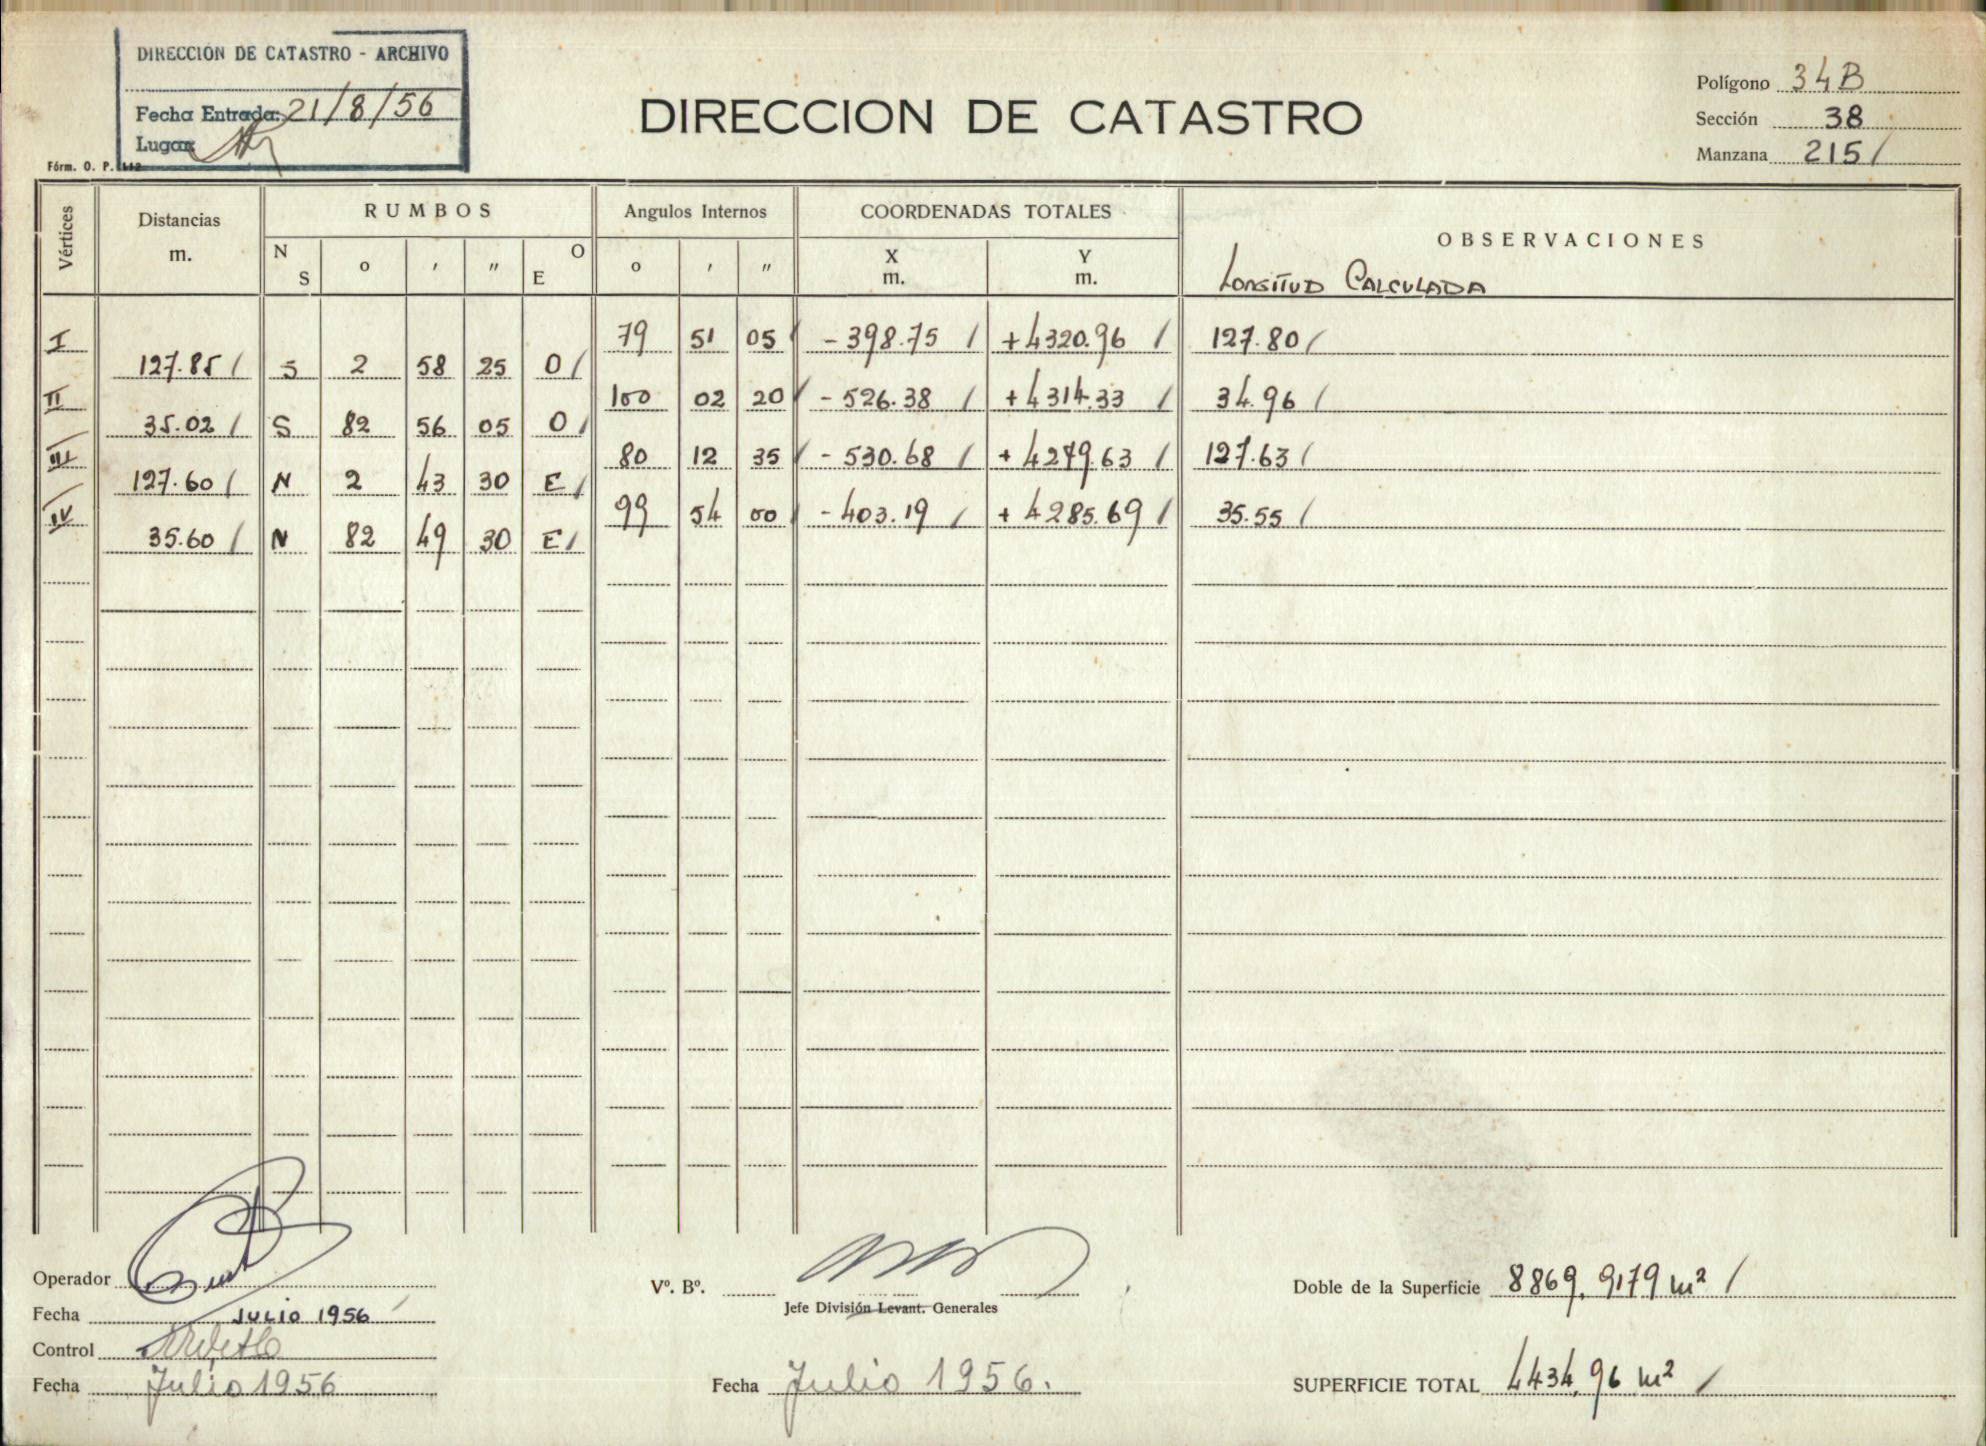 DIRECCION DE CATASTRO - ARCHIVO
Fecha Entrada: 21/8/56
Lugar
Fórm. O. P. 112
DIRECCION DE CATASTRO
Polígono 34B
Sección 38
Manzana 215/
Vértices
Distancias
m.
RUMBOS
N S
o ' "
O E
Angulos Internos
o ' "
COORDENADAS TOTALES
X m.
Y m.
OBSERVACIONES
LONGITUD CALCULADA
I 79 51 05/ -398.75 / +4320.96 / 127.80/
127.85/ S 2 58 25 O/
II 100 02 20/ -526.38 / +4314.33 / 34.96/
35.02/ S 82 56 05 O/
III 80 12 35/ -530.68 / +4279.63 / 127.63/
127.60/ N 2 43 30 E/
IV 99 54 00/ -403.19 / +4285.69/ 35.55/
35.60/ N 82 49 30 E/
Operador
Fecha JULIO 1956
Control
Fecha Julio 1956
Vº. Bº.
Jefe División Levant. Generales
Fecha Julio 1956.
Doble de la Superficie 8869,9179 m² /
SUPERFICIE TOTAL 4434,96 m² /